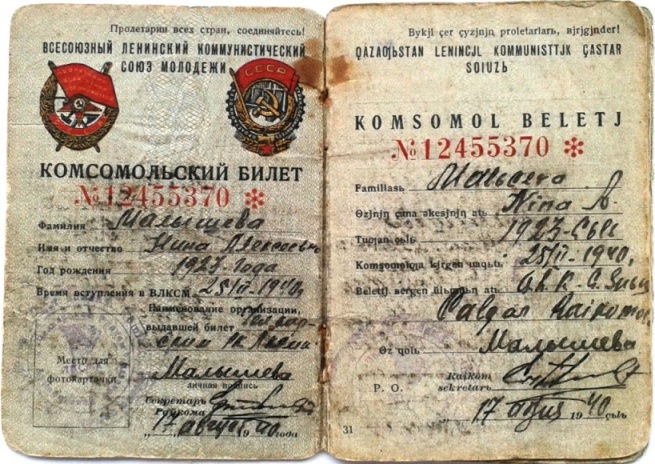 Пролетарии всех стран, соединяйтесь!
ВСЕСОЮЗНЫЙ ЛЕНИНСКИЙ КОММУНИСТИЧЕСКИЙ
СОЮЗ МОЛОДЕЖИ
СССР
КОМСОМОЛЬСКИЙ БИЛЕТ
№12455370 *
Фамилия Малышева
Имя и отчество Нина
Год рождения 1923 года
Время вступления в ВЛКСМ 25/II-1940
Наименование организации,
выдавшей билет
Место для
фотокарточки
Малышева
личная подпись
Секретарь
Райкома
17 август 1940 года
Bykjl çer çyzjnjꞑ proletarlarь, вjrjgjꞑder!
QAZAQЬSTAN LENINCJL KOMMUNISTTJK ÇASTAR
SOIUZЬ
KOMSOMOL BELETJ
№12455370 *
Familiasь
Øzjnjꞑ çəne əkesjnjꞑ atь Nina A.
Tuƣan çьlь 1923
Komsomolƣa kjrgen uaqьtь 25/II-1940
Beletti bergen
Raikom
Øz qolь Малышева
P. O.
Raikom
sekretarь
17 1940 çьlь
31